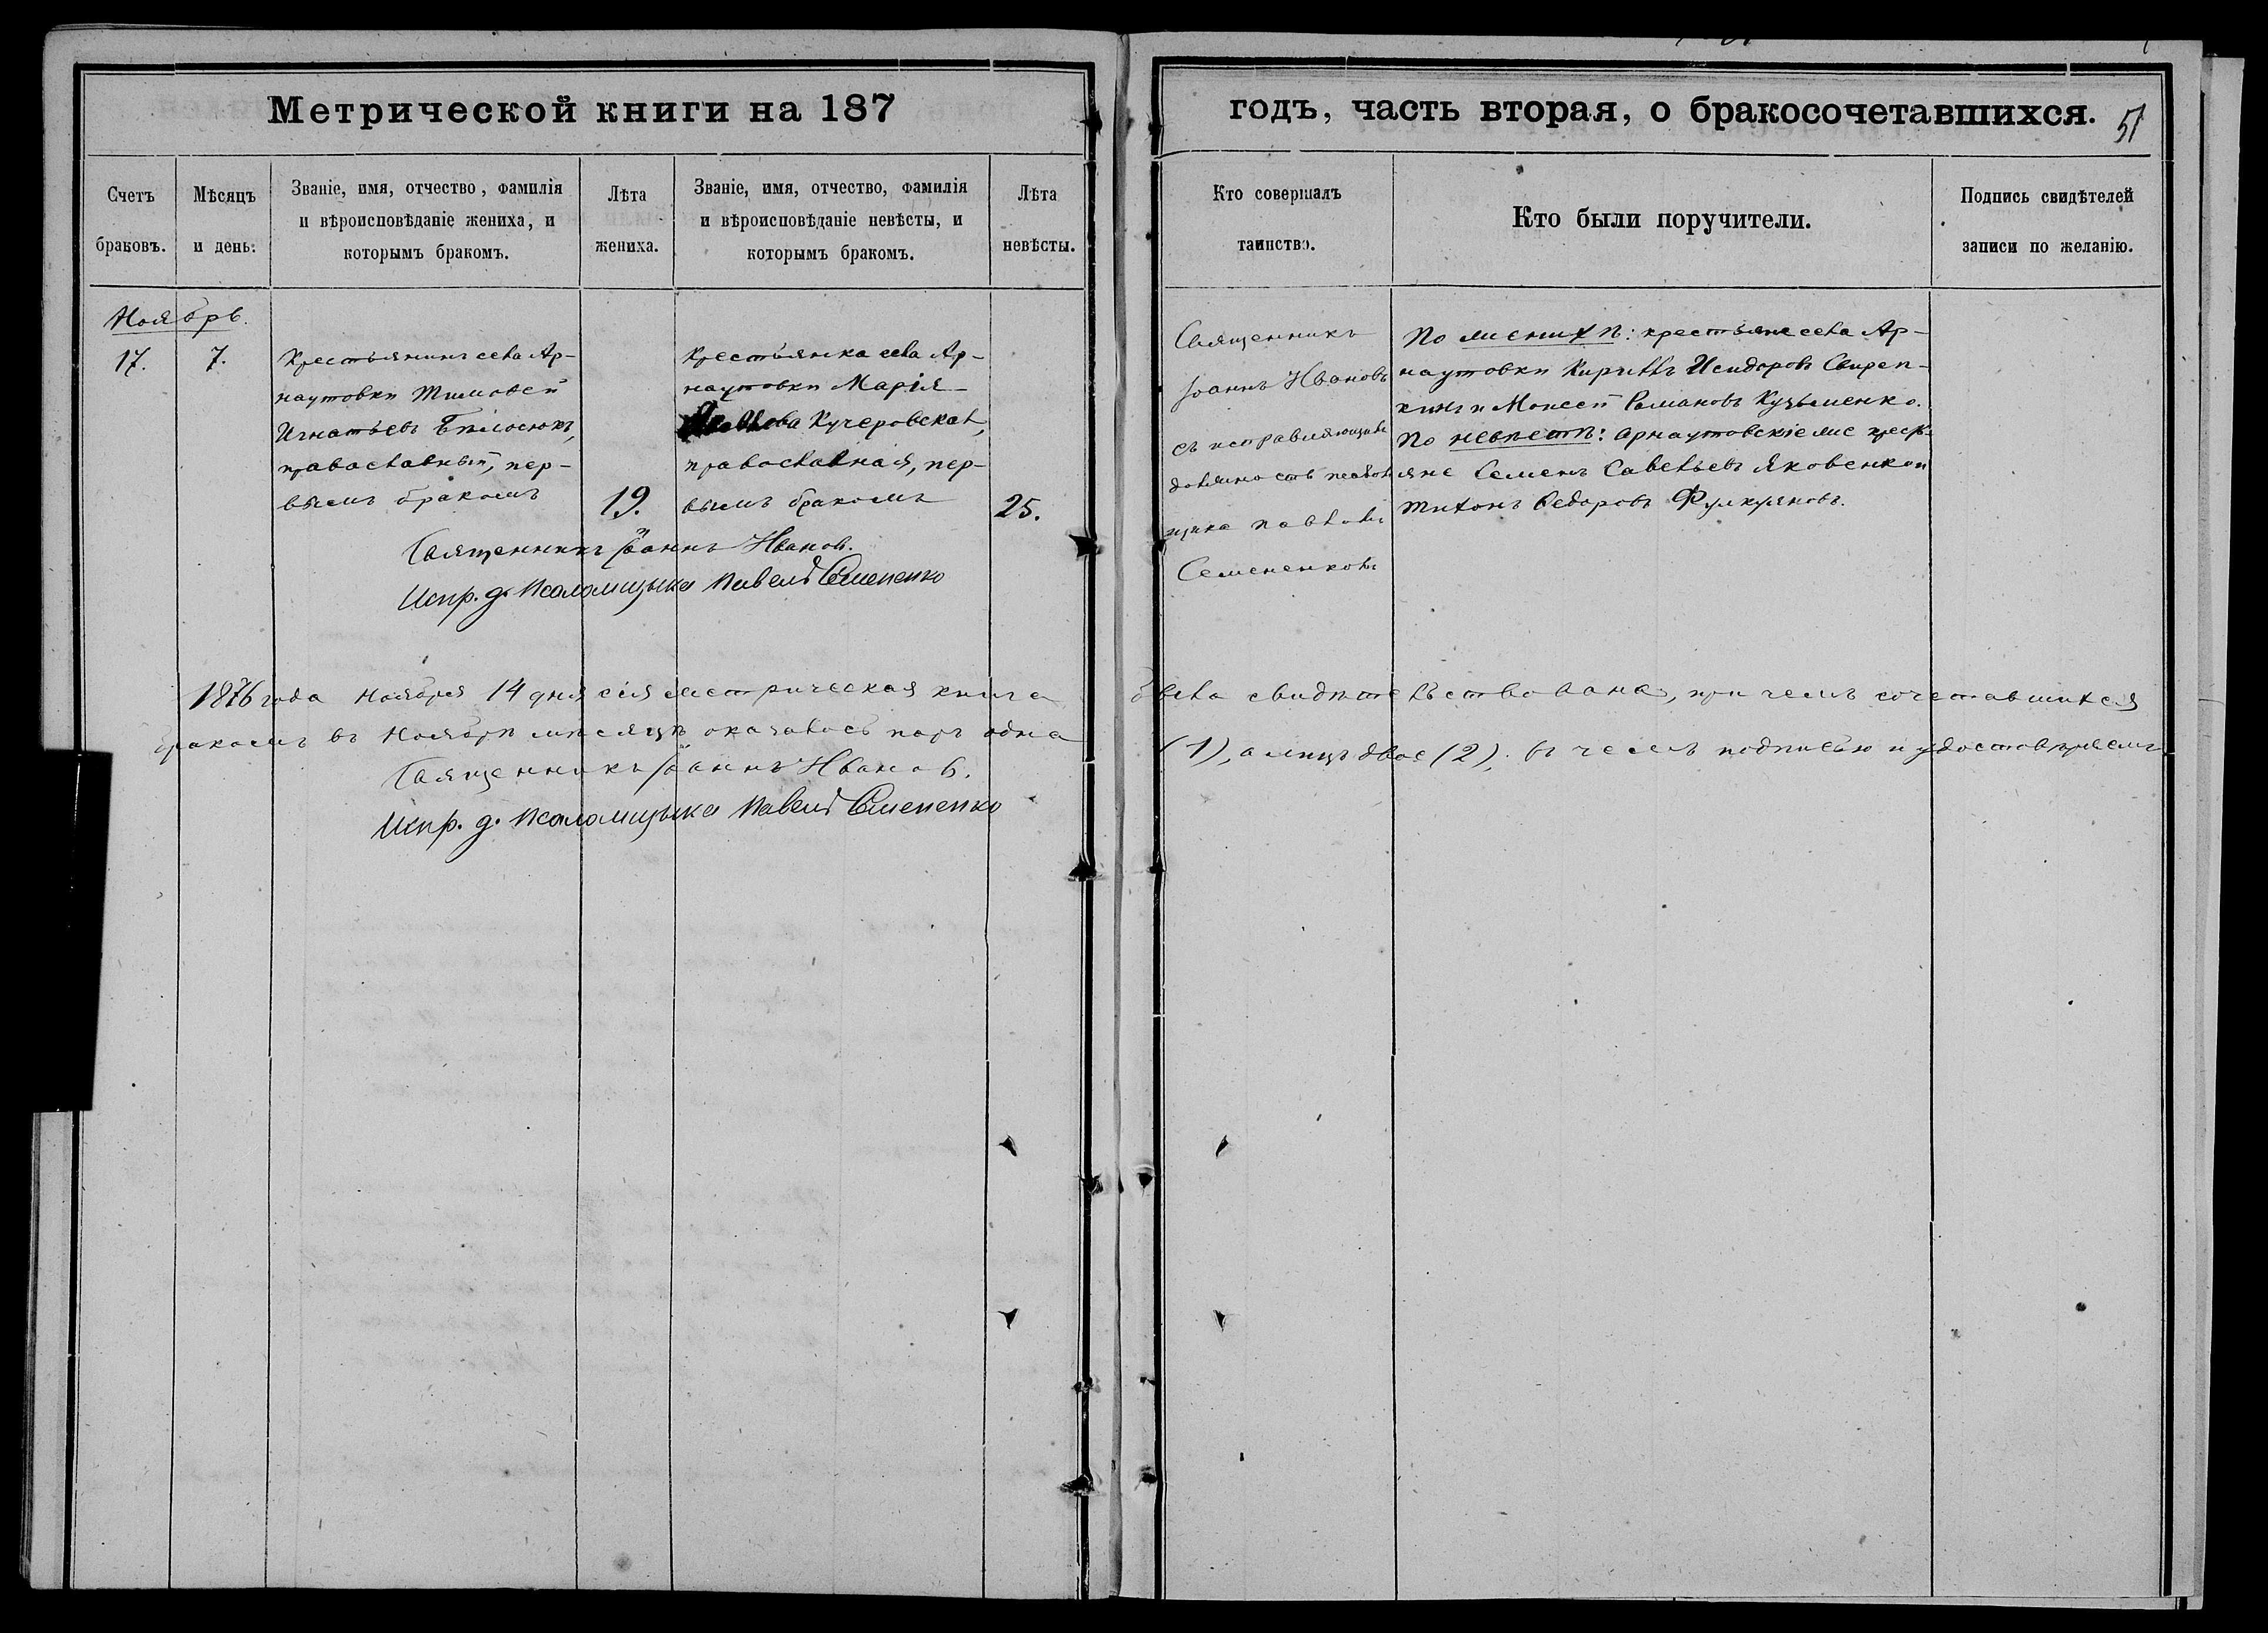 Метрической книги на 187
годъ, часть вторая, о бракосочетавшихся.
51
Счетъ
браковъ.
Мѣсяцъ
и день.
Званіе, имя, отчество, фамилія
и вѣроисповѣданіе жениха, и
которымъ бракомъ.
Лѣта
жениха.
Званіе, имя, отчество, фамилія
и вѣроисповѣданіе невѣсты, и
которымъ бракомъ.
Лѣта
невѣсты.
Кто совершалъ
таинство.
Кто были поручители.
Подпись свидѣтелей
записи по желанію.
Ноябрь.
17.
7.
Крестьянинъ села Ар-
наутовки Тимофей
Игнатьевъ Бѣлосюкъ,
православный, пер-
вымъ бракомъ
19.
Крестьянка села Ар-
наутовки Марія
Кучеровская,
православная, пер-
вымъ бракомъ
25.
Священникъ
Іоаннъ Ивановъ
съ исправляющимъ
должность псалом-
щика Павломъ
Семененковъ
По женихѣ: крестьяне села Ар-
наутовки Кириллъ Исидоровъ Свиреп-
кинъ и Моисей Романовъ Кузьменко.
По невѣстѣ: арнаутовскіе же кресть-
яне Семенъ Савельевъ Яковенко и
Тихонъ Федоровъ
Священникъ Іоаннъ Ивановъ.
Испр. д. Псаломщика Павелъ Семененко
1876 года Ноября 14 дня сія метрическая книга
была свидѣтельствована, при чемъ сочетавшихся
бракомъ въ Ноябрѣ мѣсяцѣ оказалось паръ одна
(1), а лицъ двое (2). въ чемъ подписью и удостовѣряемъ
Священникъ Іоаннъ Ивановъ.
Испр. д. Псаломщика Павелъ Семененко